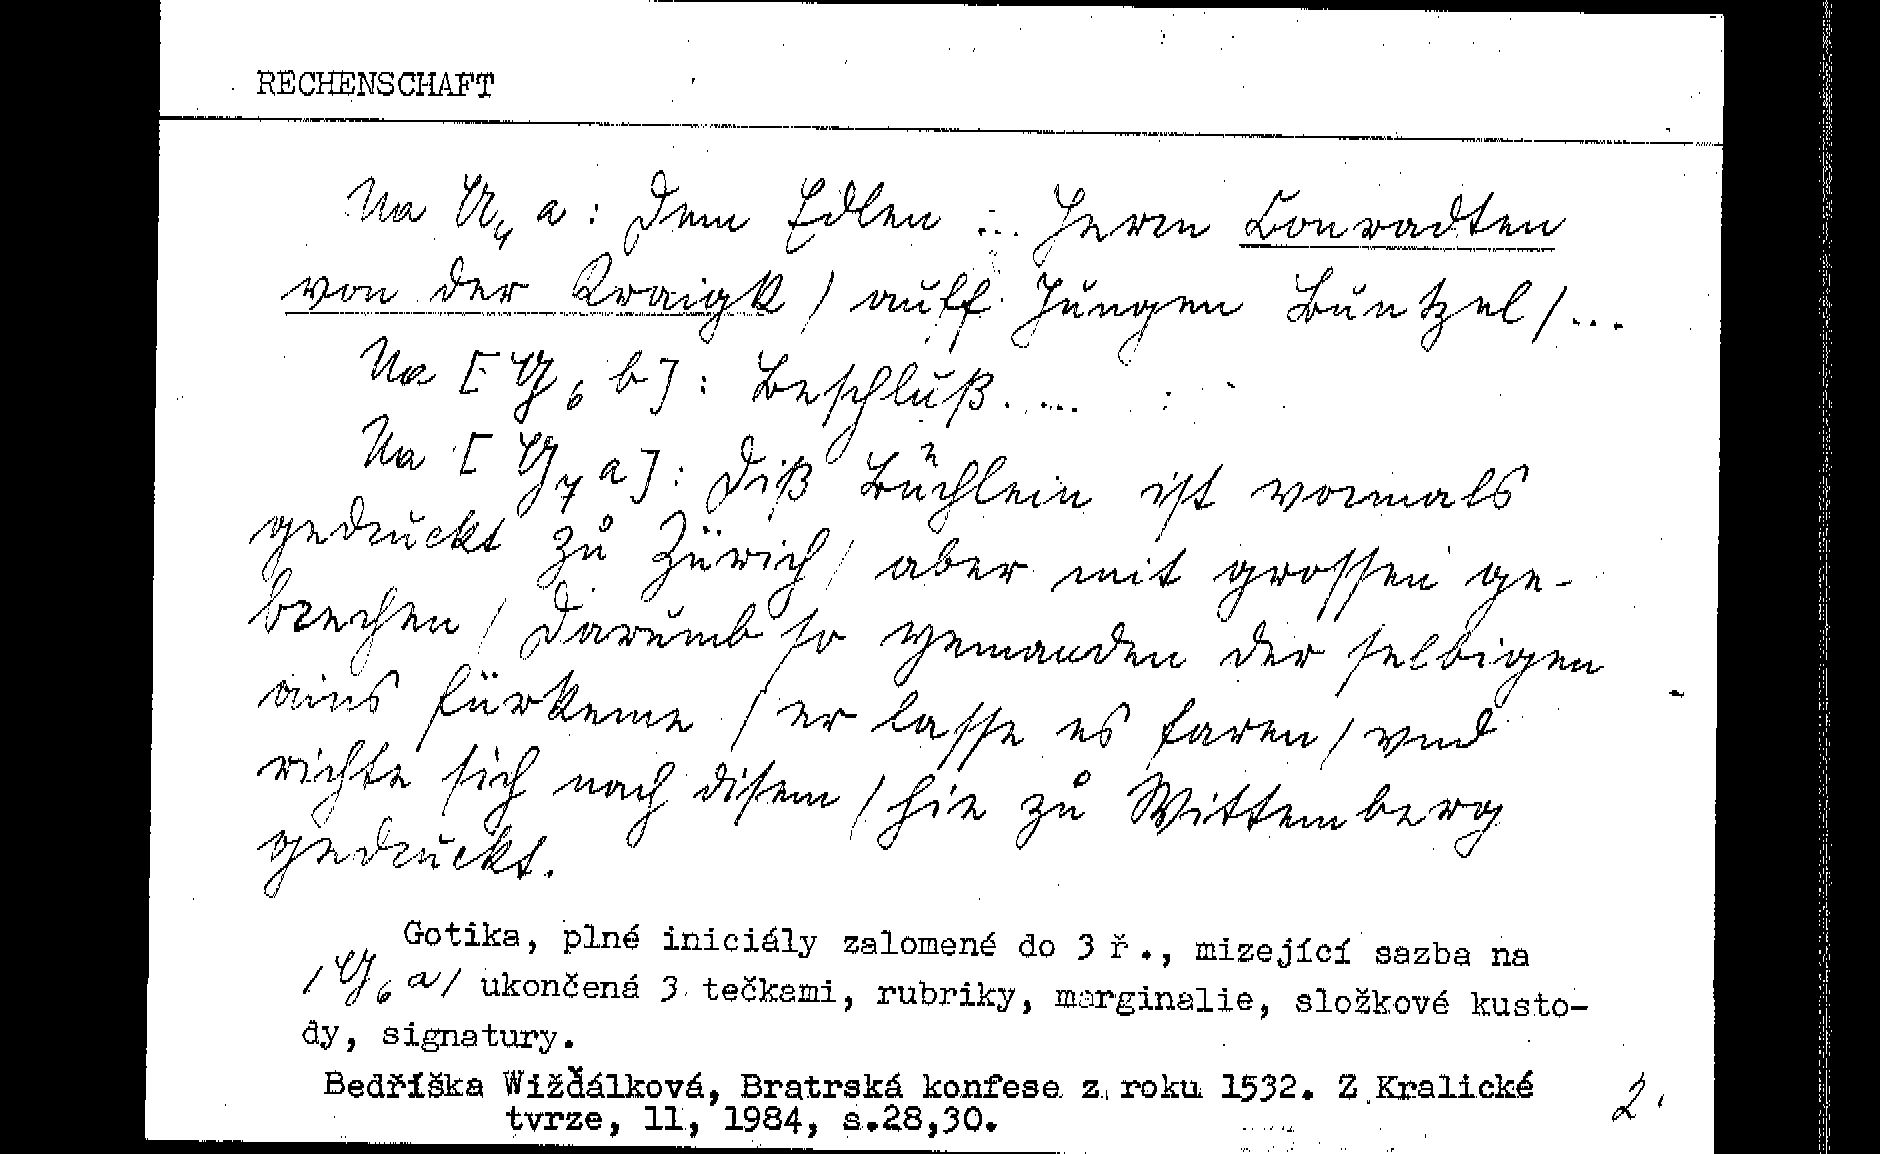 RECHENSCHAFT
Na A₄ a: Dem Edlen ... Herrn Conradten
von der Kraigk / auff Jungen Buntzel / ...
Na [G₆ b]: Beschluß. ...
Na [G₇ a]: Diß Buͤchlein ist vormals
gedruckt zů Zürich / aber mit grossen ge-
brechen / Darumb so yemanden der selbigen
ains fürkeme / er lasse es faren / vnd
richte sich nach disem / hie zů Wittemberg
gedruckt.
Gotika, plné iniciály zalomené do 3 ř., mizející sazba na
/G₆ a/ ukončená 3 tečkami, rubriky, marginalie, složkové kusto-
dy, signatury.
Bedříška Wižďálková, Bratrská konfese z roku 1532. Z Kralické
tvrze, 11, 1984, s.28,30.
2.